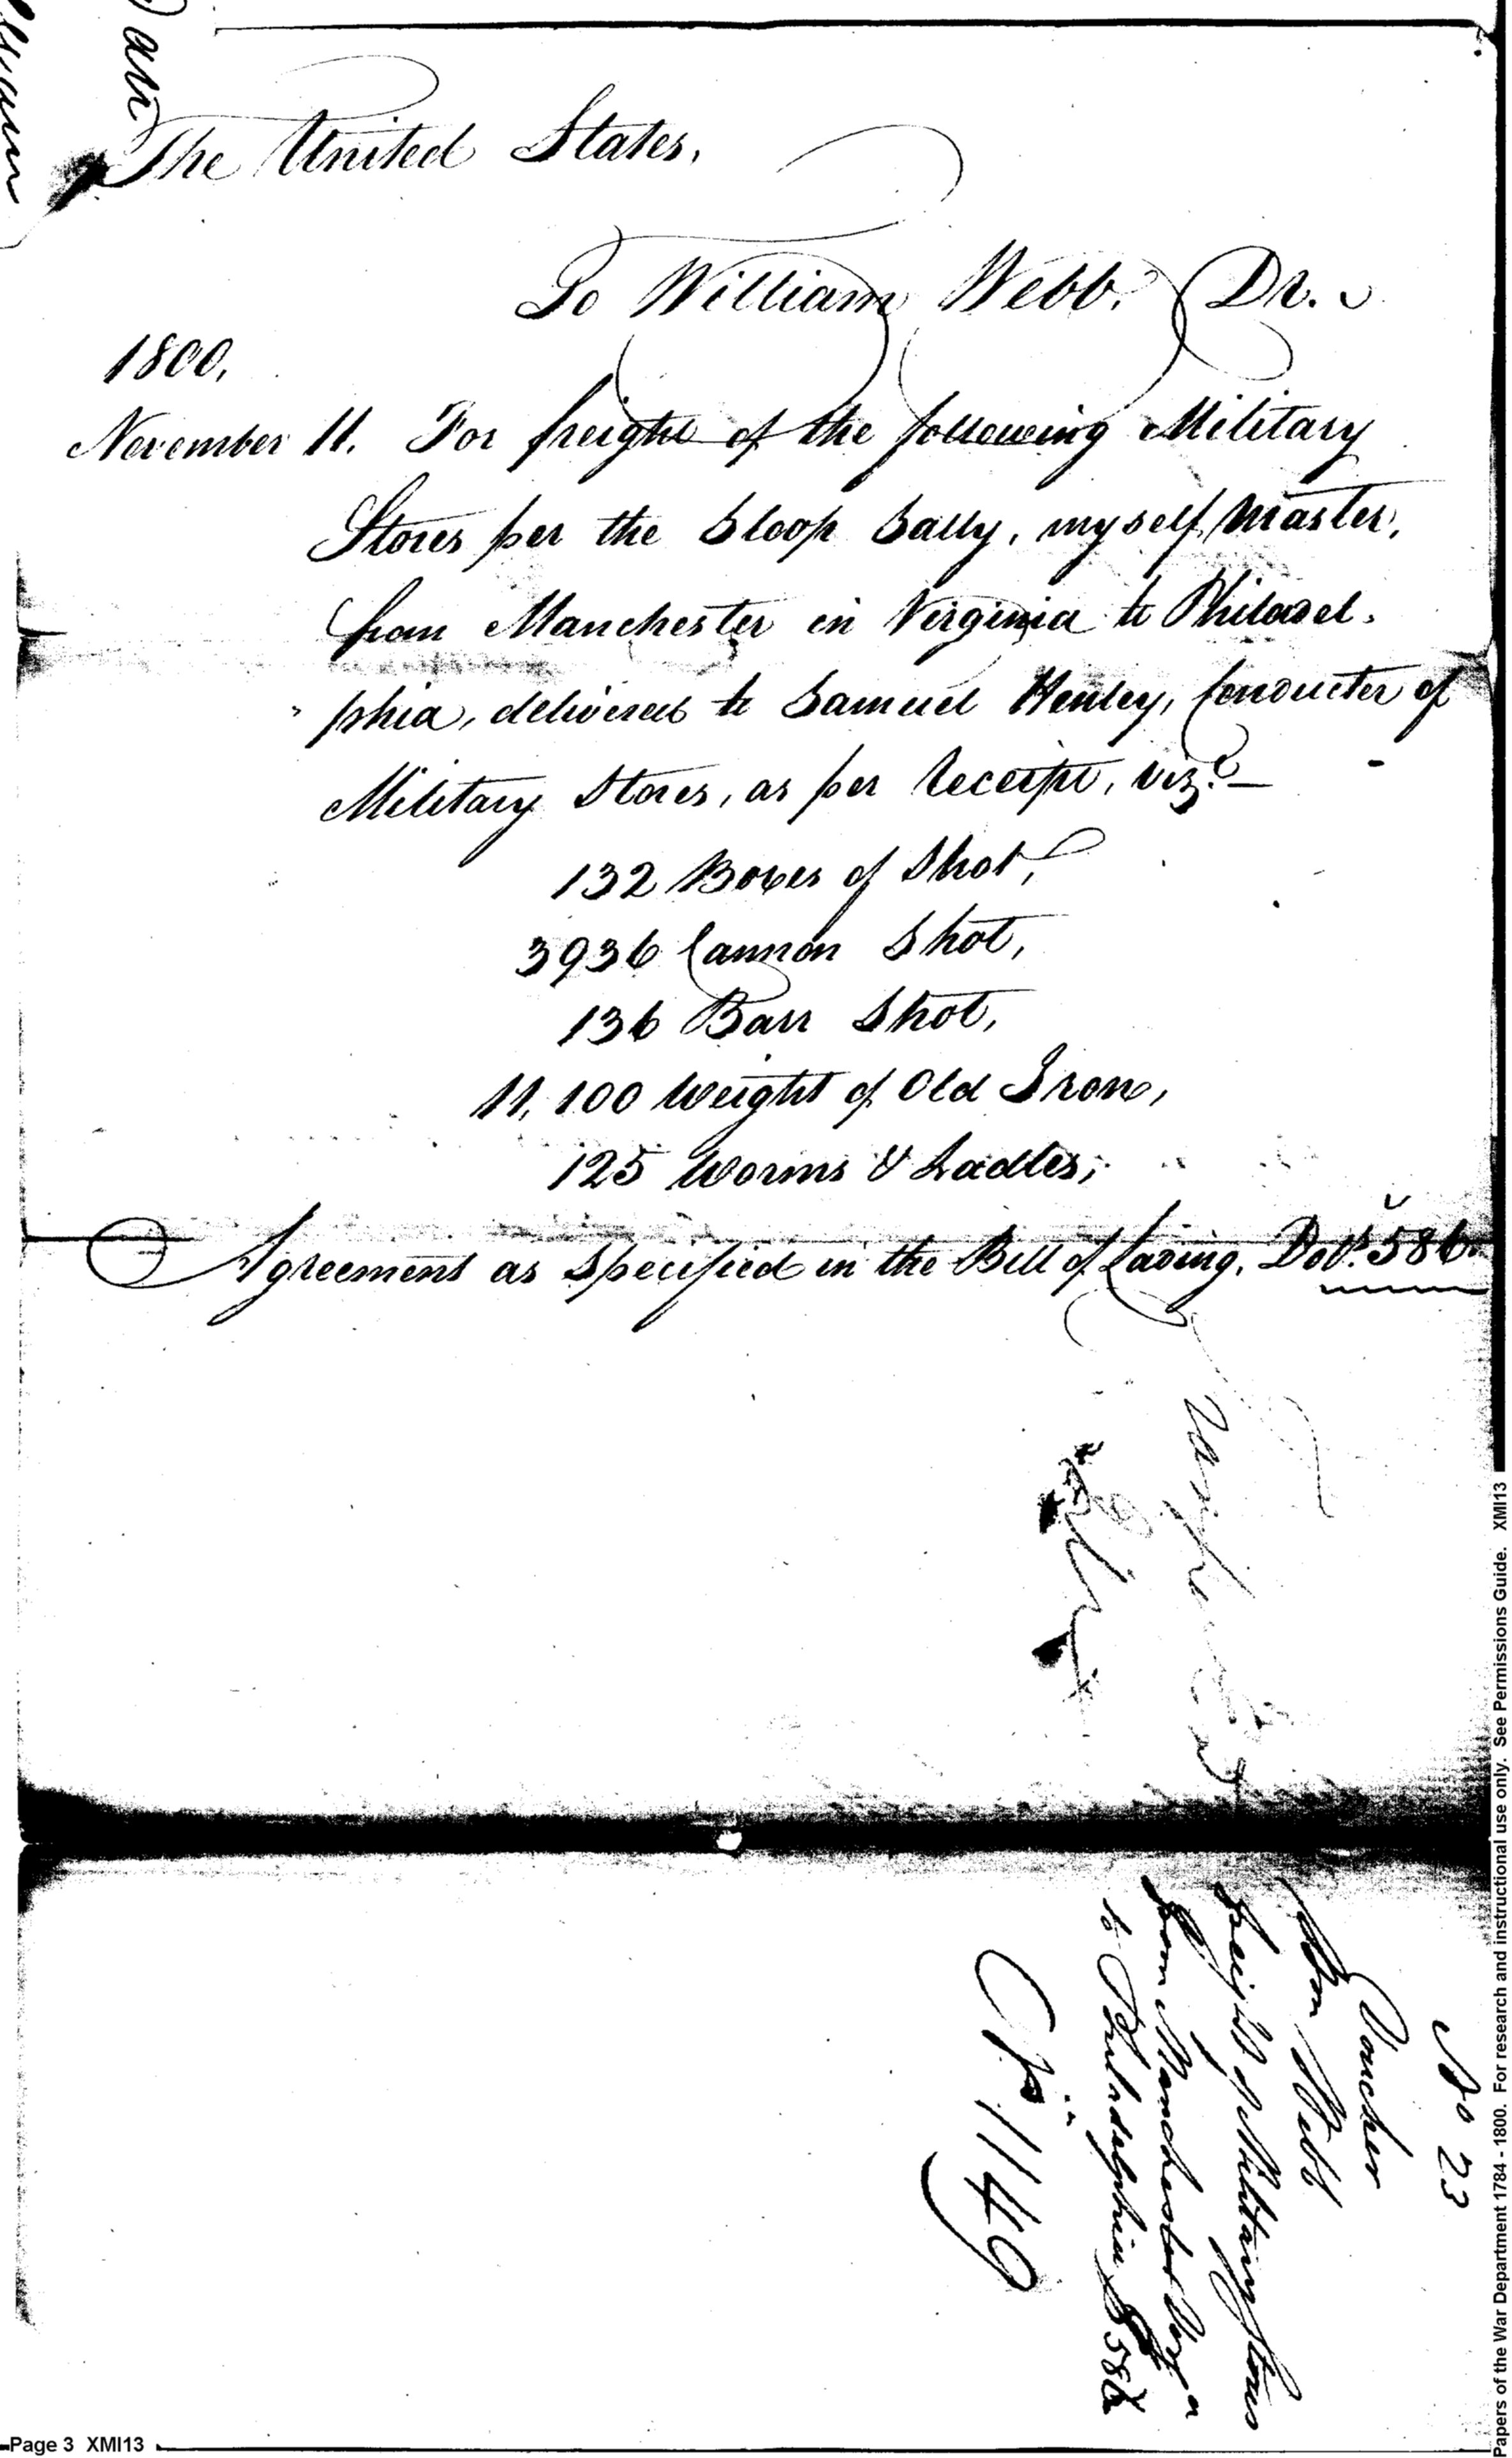 The United States,
To William Webb. Dr.
1800,
November 11. For freight of the following Military
Stores per the Sloop Sally, myself Master,
from Manchester in Virginia to Philadel-
phia, delivered to Samuel Henley, Conducter of
Military Stores, as per Receipt, vizt.—
132 Boxes of Shot,
3936 Cannon Shot,
136 Barr Shot,
11,100 Weight of Old Iron,
125 Worms & Ladles;
Agreement as Specified in the Bill of Lading. Dolls. 586.
No 23
Voucher
Wm Webb
Freight of Military Stores
from Manchester Virga
to Philadelphia $586
1149
Papers of the War Department 1784 - 1800. For research and instructional use only. See Permissions Guide. XMI13
Page 3 XMI13